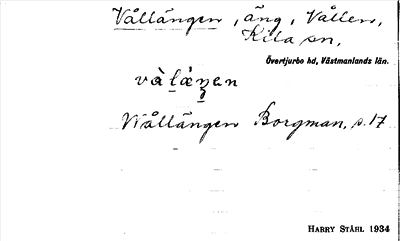 Vållängen, äng, Vallen,
Kila sn,
Övertjurbo hd, Västmanlands län.
Wållängen Borgman, s. 17
HARRY STÅHL 1934